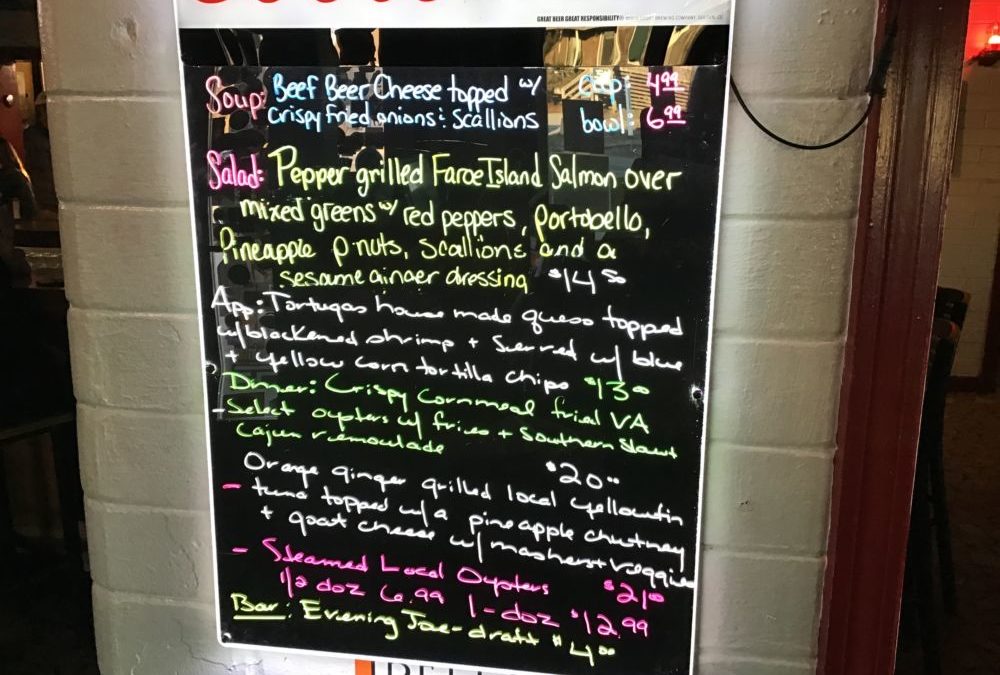 GREAT BEER GREAT RESPONSIBILITY®
Soup: Beef Beer Cheese topped w/ cup: 4.99
Crispy Fried onions & Scallions bowl: 6.99
Salad: Pepper grilled Faroe Island Salmon over
mixed greens w/ red peppers, portobello,
Pineapple p-nuts, scallions and a
sesame ginger dressing $14.50
App: Tortugas house made queso topped
w/blackened shrimp + Served w/ blue
+ yellow corn tortilla chips $13.00
Dinner: Crispy Cornmeal fried VA
- Select oysters w/ fries + Southern Slaw +
Cajun remoulade
$20.00
Orange ginger grilled local yellowfin
- tuna topped w/ a pineapple chutney
+ goat cheese w/ mashers + veggies
$21.00
- Steamed Local Oysters
1/2 doz 6.99 1-doz $12.99
Bar: Evening Joe-draft $4.00